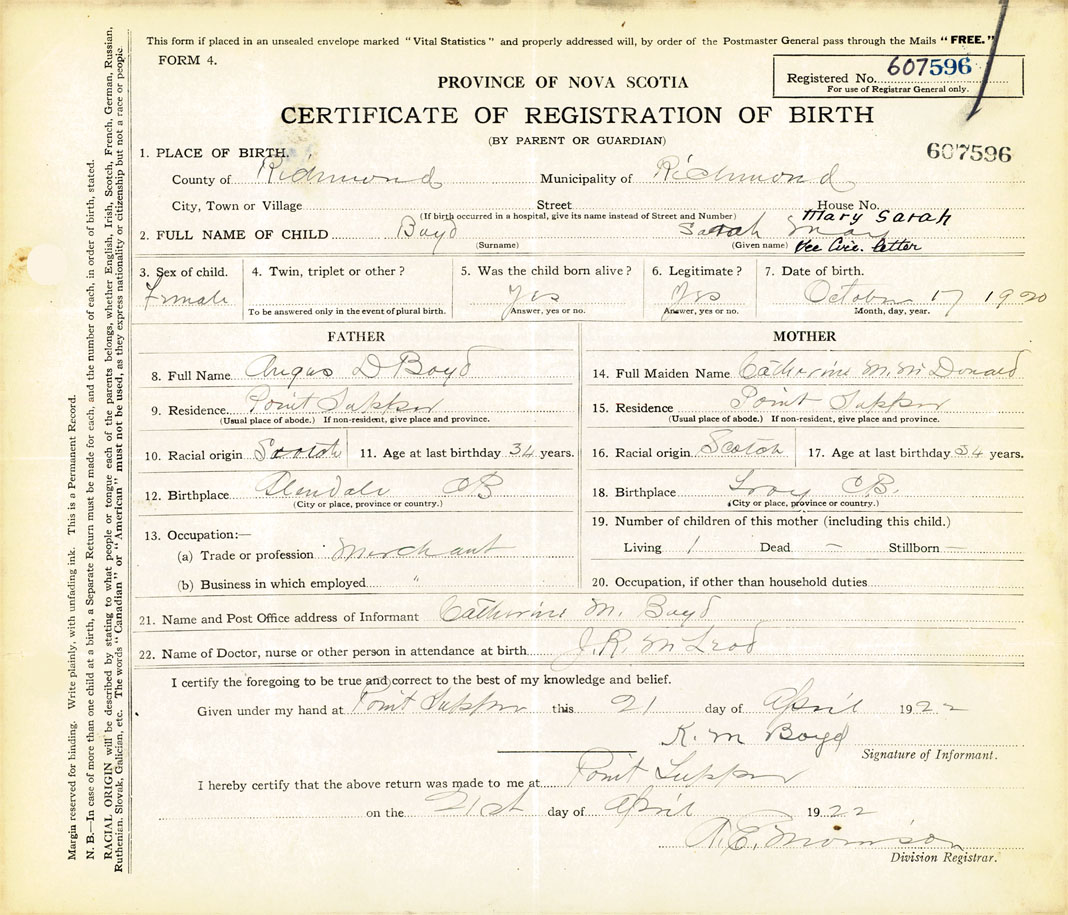 This form if placed in an unsealed envelope marked "Vital Statistics" and properly addressed will, by order of the Postmaster General pass through the Mails "FREE."
FORM 4.
Registered No. 607596
For use of Registrar General only.
PROVINCE OF NOVA SCOTIA
CERTIFICATE OF REGISTRATION OF BIRTH
(BY PARENT OR GUARDIAN)
607596
1. PLACE OF BIRTH.
County of Richmond Municipality of Richmond
City, Town or Village Street House No.
(If birth occurred in a hospital, give its name instead of Street and Number) Mary Sarah
2. FULL NAME OF CHILD Boyd Sarah May
(Surname) (Given name) See Circ. letter
3. Sex of child. 4. Twin, triplet or other? 5. Was the child born alive? 6. Legitimate? 7. Date of birth.
Female Yes Yes October 17 1920
To be answered only in the event of plural birth. Answer, yes or no. Answer, yes or no. Month, day, year.
FATHER
8. Full Name Angus D Boyd
9. Residence Point Tupper
(Usual place of abode.) If non-resident, give place and province.
10. Racial origin Scotch 11. Age at last birthday 34 years.
12. Birthplace Glendale CB
(City or place, province or country.)
13. Occupation:—
(a) Trade or profession Merchant
(b) Business in which employed "
MOTHER
14. Full Maiden Name Catherine M. McDonald
15. Residence Point Tupper
(Usual place of abode.) If non-resident, give place and province.
16. Racial origin Scotch 17. Age at last birthday 34 years.
18. Birthplace Troy CB.
(City or place, province or country.)
19. Number of children of this mother (including this child.)
Living 1 Dead — Stillborn —
20. Occupation, if other than household duties
21. Name and Post Office address of Informant Catherine M. Boyd
22. Name of Doctor, nurse or other person in attendance at birth J.R. McLeod
I certify the foregoing to be true and correct to the best of my knowledge and belief.
Given under my hand at Point Tupper this 21 day of April 1922
K. M Boyd
Signature of Informant.
I hereby certify that the above return was made to me at Point Tupper
on the 21st day of April 1922
A.E. Morrison
Division Registrar.
Margin reserved for binding. Write plainly, with unfading ink. This is a Permanent Record.
N. B.—In case of more than one child at a birth, a Separate Return must be made for each, and the number of each, in order of birth, stated.
RACIAL ORIGIN will be described by stating to what people or tongue each of the parents belongs, whether English, Irish, Scotch, French, German, Russian,
Ruthenian, Slovak, Galician, etc. The words "Canadian" or "American" must not be used, as they express nationality or citizenship but not a race or people.